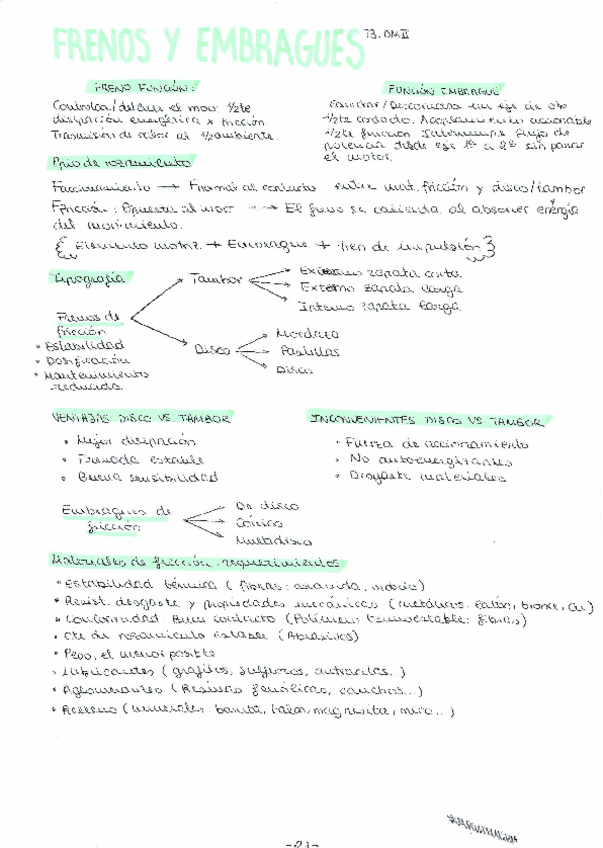 FRENOS Y EMBRAGUES T3. DMII
FRENO FUNCIÓN:
Controlar/detener el mov. ½te
disipación energética x fricción.
Transmisión de calor al ½ambiente.
FUNCIÓN EMBRAGUE
Conectar/Desconectar un eje de otro
½te cortado. Acoplamiento accionable
½te fricción Interrumpe flujo de
potencia desde eje 1º a 2º sin parar
el motor.
Ppio de rozamiento
Faccionamiento → Fnormal al contacto entre mat. fricción y disco/tambor
Ffricción: Opuesta al mov → El freno se calienta al absorber energía
del movimiento.
{ Elemento motriz + Embrague + tren de impulsión }
Tipografía
Tambor
Externo zapata corta.
Externo zapata larga
Interno zapata larga
Frenos de
fricción
Estabilidad
Dosificación
Mantenimiento
reducido.
Disco
Mordaza
Pastillas
Disco
VENTAJAS DISCO VS. TAMBOR
Mejor disipación
Frenada estable
Buena sensibilidad
INCONVENIENTES DISCO VS TAMBOR
Fuerza de accionamiento
No autoenergizantes
Desgaste materiales
Embragues de
fricción
De disco
Cónico
Multidisco
Materiales de fricción: requerimientos
Estabilidad térmica (fibras: aramida, vidrio)
Resist. desgaste y propiedades mecánicas (metálicos: latón, bronce, Cu)
Conformidad. Buen contacto (Polímero termoestable: fibras)
Cte de rozamiento estable (Abrasivos)
Peso, el menor posible
Lubricantes (grafitos, sulfuros, antracitas..)
Aglomerantes (Resinas fenólicas, cauchos...)
Relleno (minerales: barita, talco, magnesita, mica...)
-21-